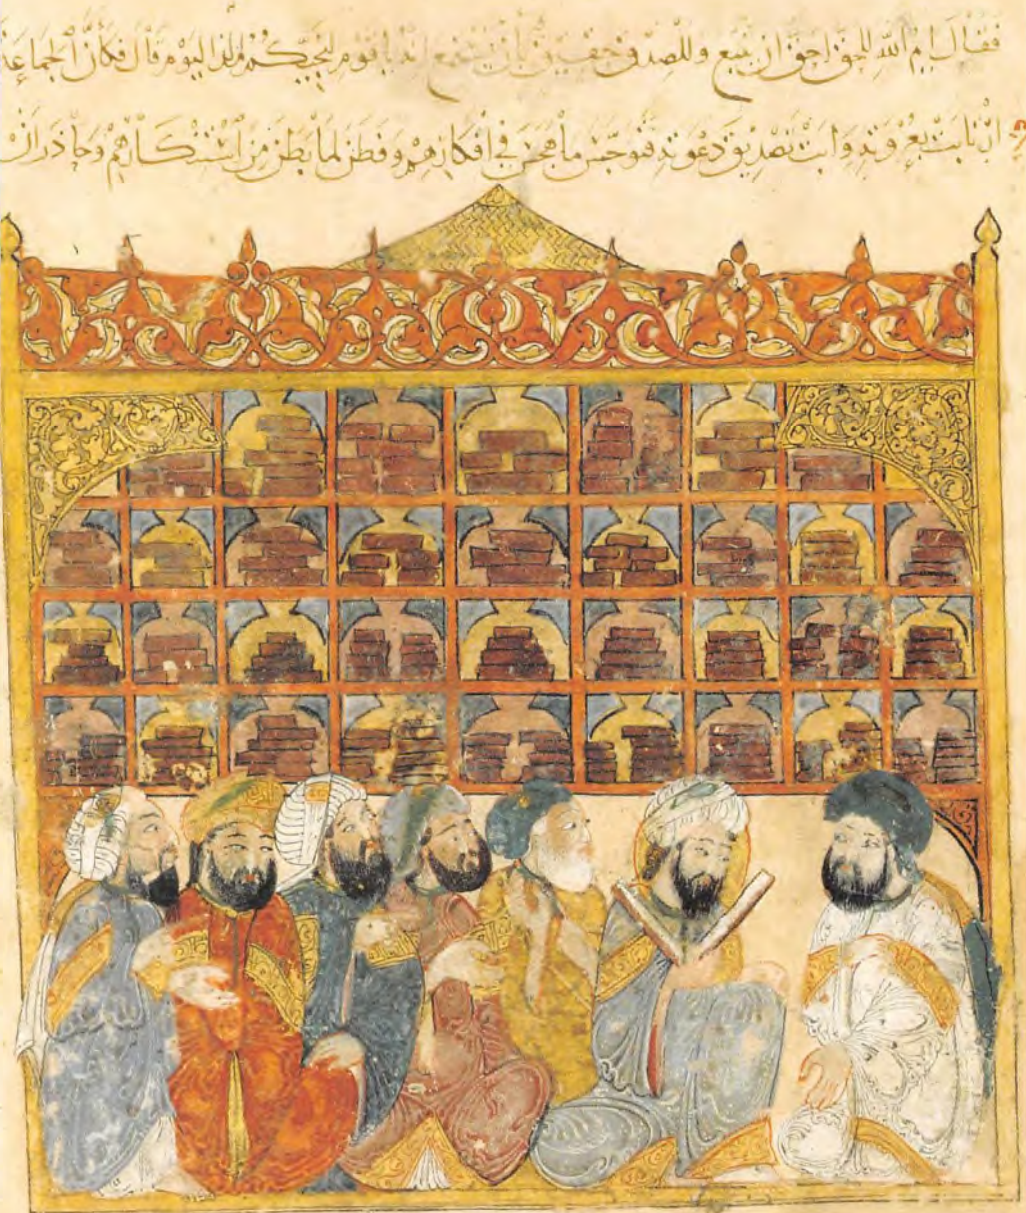 فقال ايم الله للحق احق ان يتبع وللصدق حقيق بان يستمع انه يا قوم لنجيكم مذ اليوم قال فكأن الجماعة
ارتابت بعزوته وابت تصديق دعوته فتوجس ما هجس في افكارهم وفطن لما بطن من استنكارهم وحاذر ان